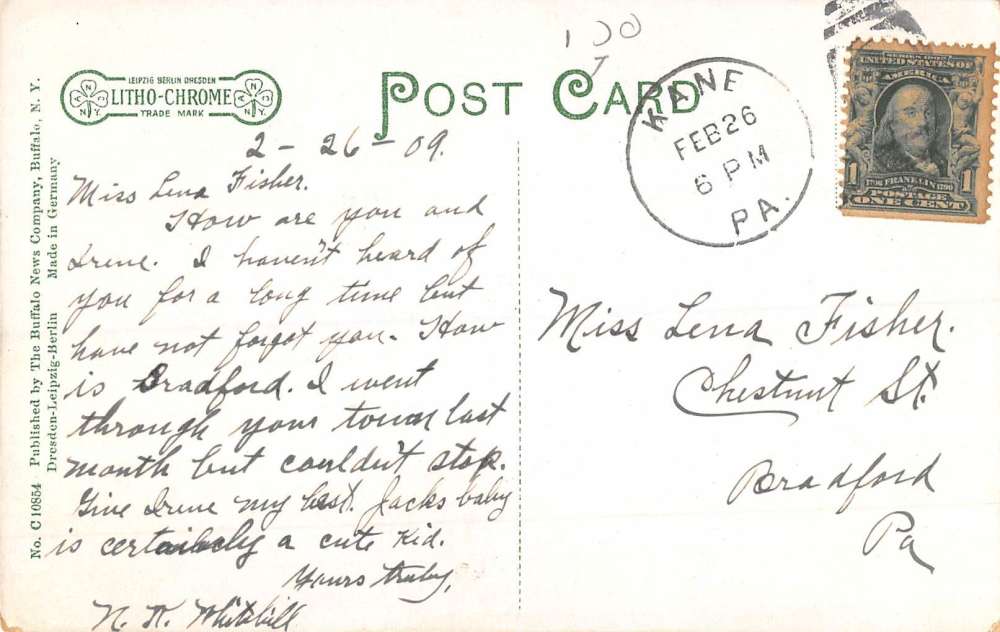 100
LEIPZIG BERLIN DRESDEN
LITHO-CHROME
TRADE MARK
A N N Y
A N C N.Y.
POST CARD
KANE
FEB 26
6 PM
PA.
SERIES 1902
UNITED STATES OF
AMERICA
1706 FRANKLIN 1790
1 POSTAGE 1
ONE CENT
No. C 10854 Published by The Buffalo News Company, Buffalo, N. Y.
Dresden-Leipzig-Berlin Made in Germany
2 - 26 - 09.
Miss Lena Fisher.
How are you and
Irene. I haven't heard of
you for a long time but
have not forgot you. How
is Bradford. I went
through your town last
month but couldn't stop.
Give Irene my best. Jacks baby
is certainly a cute kid.
Yours truly,
Miss Lena Fisher.
Chestnut St.
Bradford
Pa